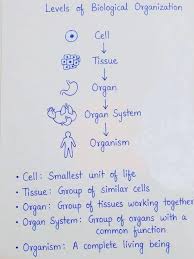 Levels of Biological Organization
Cell
Tissue
Organ
Organ System
Organism
• Cell: Smallest unit of life
• Tissue: Group of similar cells
• Organ: Group of tissues working together
• Organ System: Group of organs with a
common function
• Organism: A complete living being